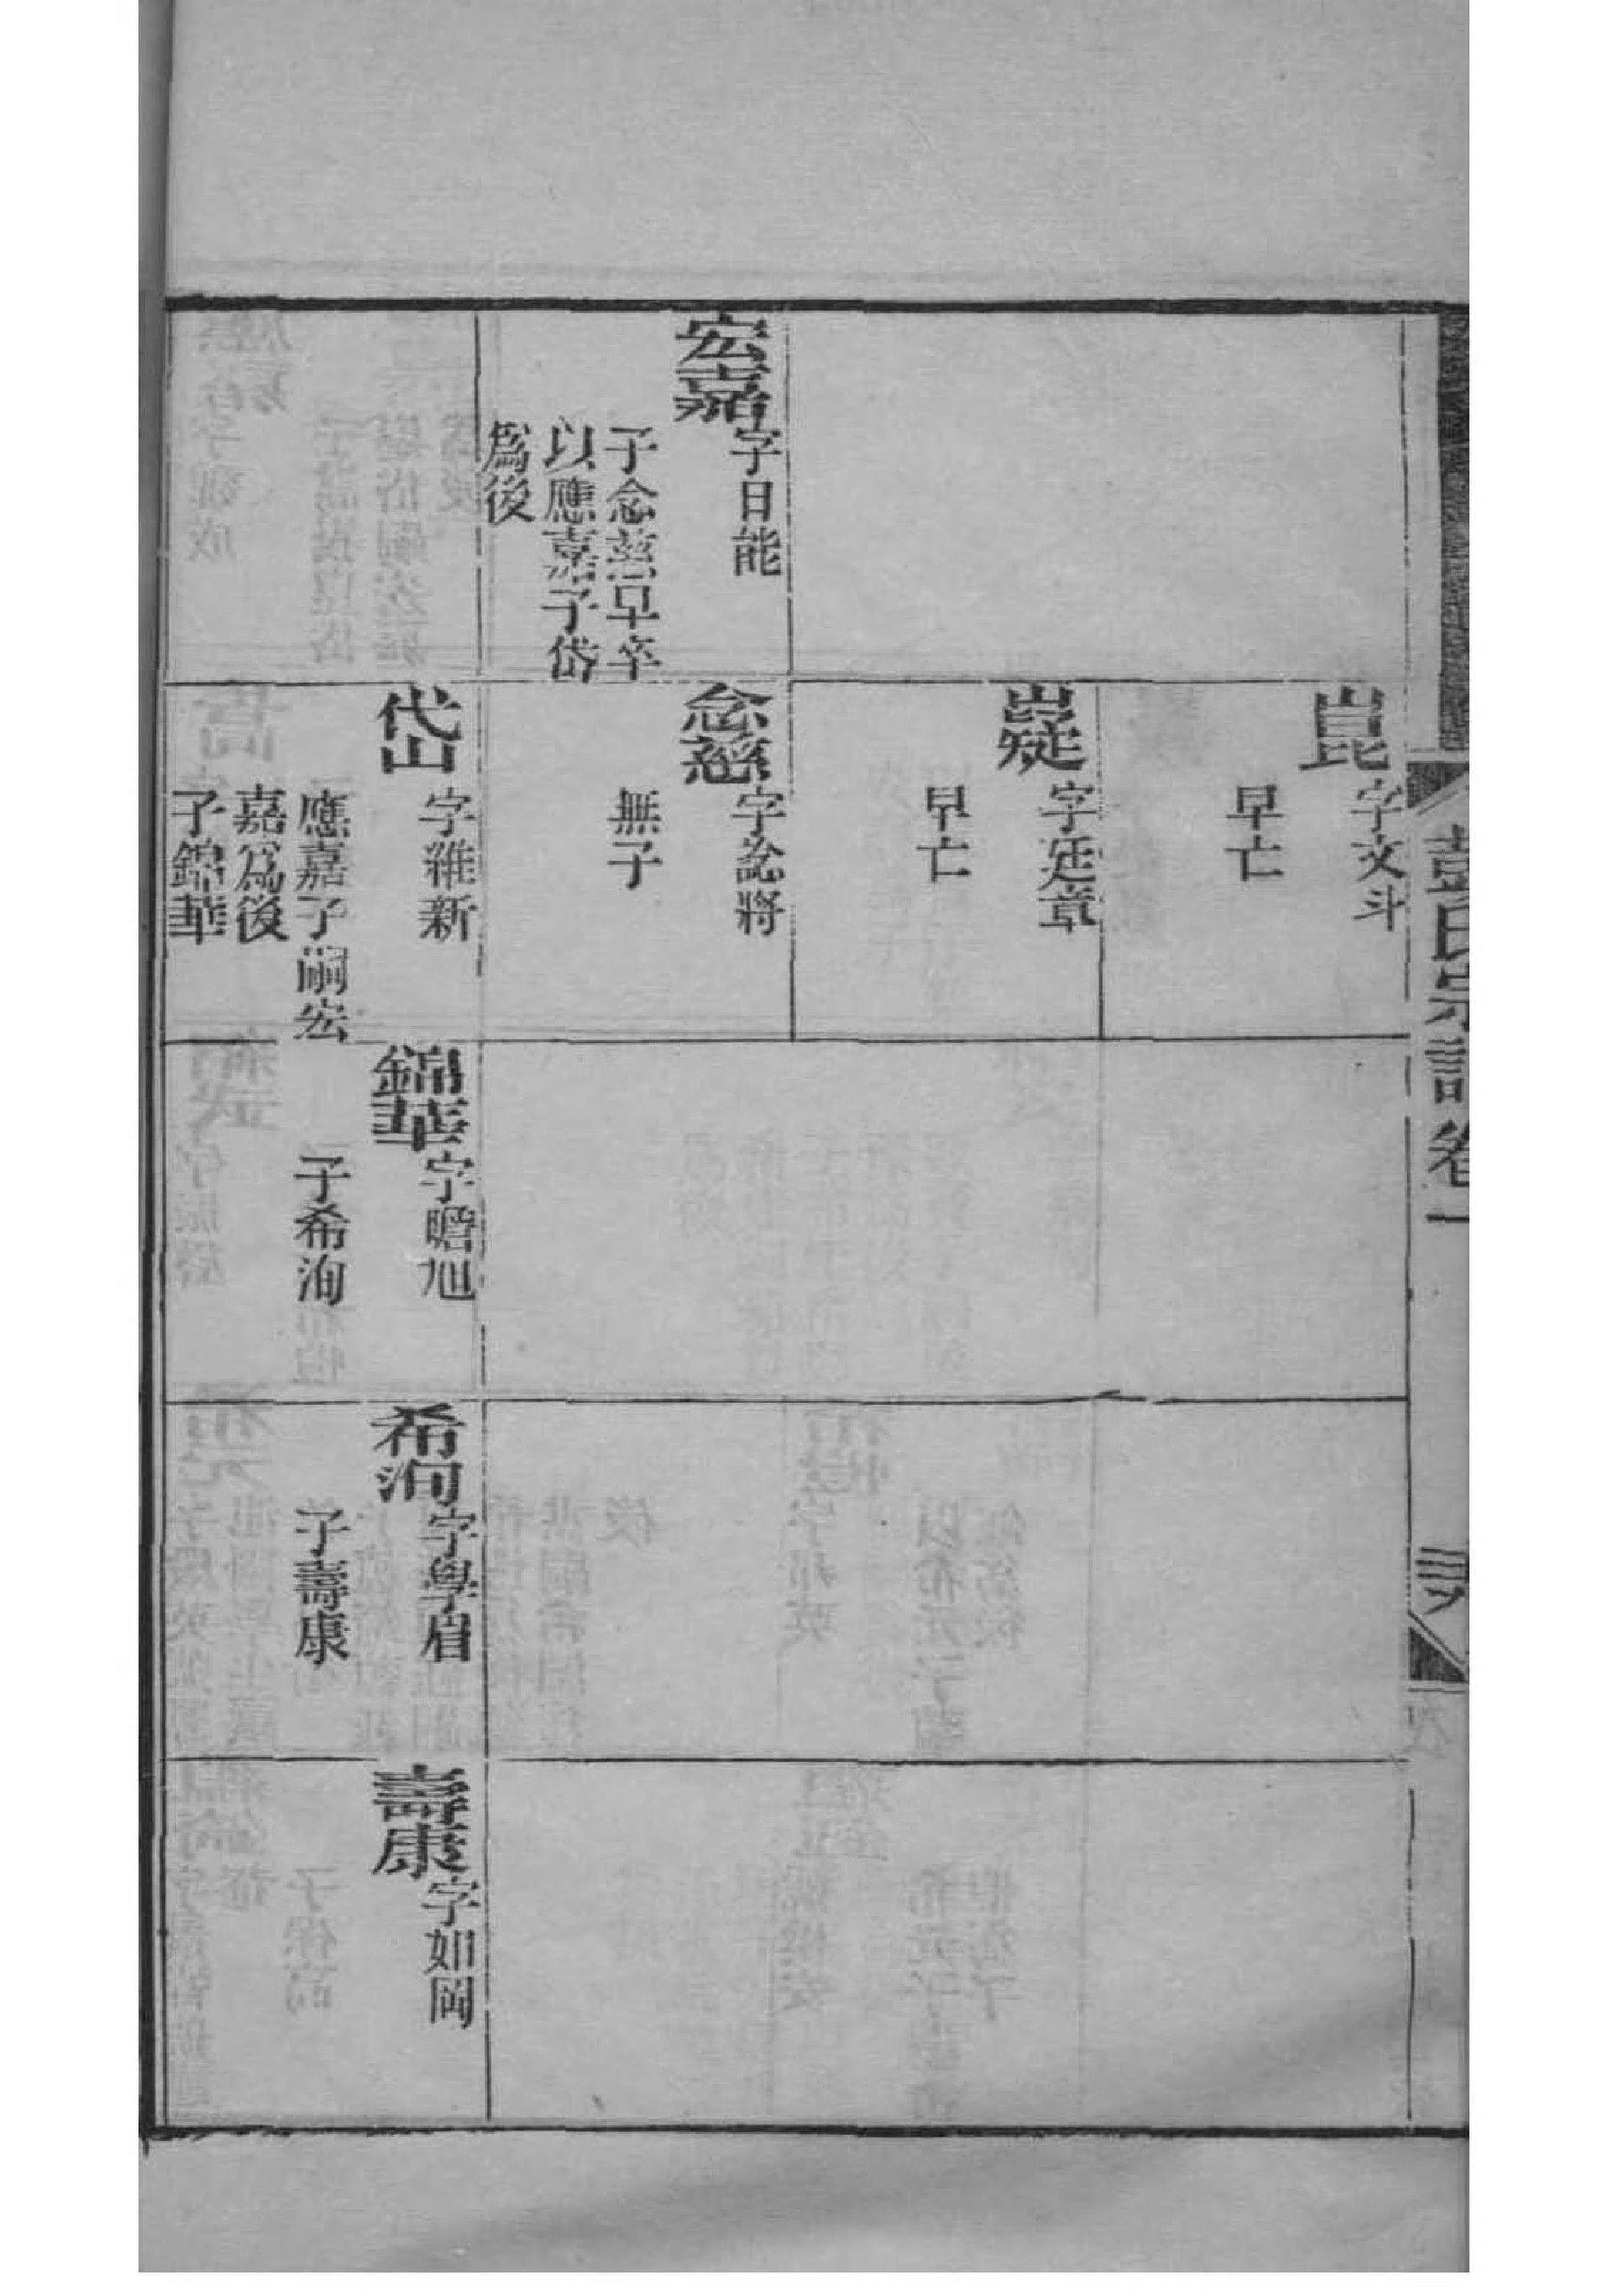 彭氏宗譜 卷一
宏嘉
字日能
子念慈早卒
以應嘉子岱
爲後
崑
字文斗
早亡
嶷
字廷章
早亡
念慈
字訟將
無子
岱
字維新
應嘉子嗣宏
嘉爲後
子錦華
錦華
字瞻旭
子希洵
希洵
字學眉
子壽康
壽康
字如岡